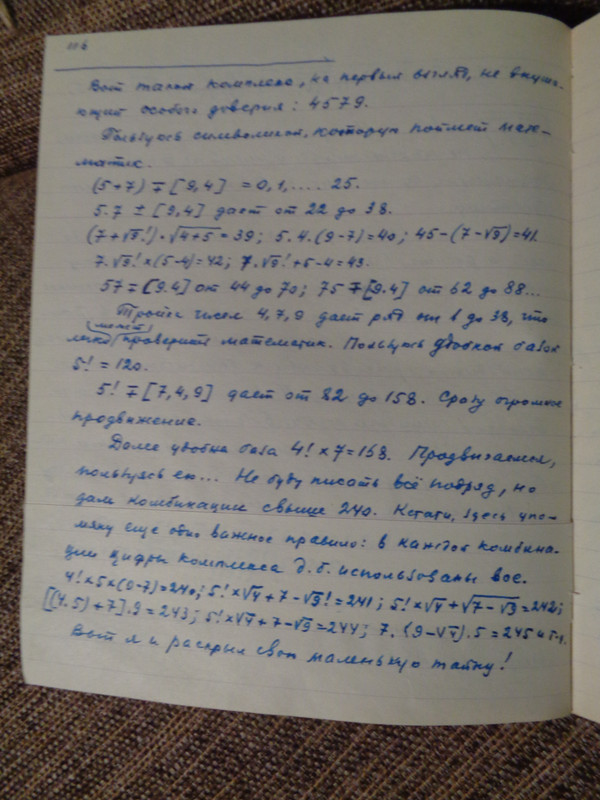 116
Вот такой комплекс, на первый взгляд, не внуша-
ющий особого доверия: 4579.
Пользуюсь символикой, которую поймет мате-
матик.
(5+7) ∓ [9,4] = 0,1,..... 25.
5.7 ± [9,4] дает от 22 до 38.
(7+√9!)·√4+5 = 39; 5.4.(9-7)=40; 45-(7-√9)=41.
7.√9!×(5-4)=42; 7.√9!+5-4=43.
57∓[9.4] от 44 до 70; 75∓[9.4] от 62 до 88...
Тройка чисел 4,7,9 дает ряд до 38, что
легко может проверить математик. Пользуюсь базой
5! = 120.
5! ∓ [7,4,9] дает от 82 до 158. Сразу огромное
продвижение.
Далее удобна база 4! × 7 = 168. Продвигаемся,
пользуясь ею... Не буду писать всё подряд, но
дам комбинации свыше 240. Кстати, здесь упо-
мяну еще одно важное правило: в каждой комбина-
ции цифры комплекса д.б. использованы все.
4!×5×(9-7)=240; 5!×√4+7-√9!=241; 5!×√4+√7-√9=242;
[(4.5)+7].9=243; 5!×√4+7-√9=244; 7.(9-√4).5=245 и т.д.
Вот я и раскрыл свою маленькую тайну!